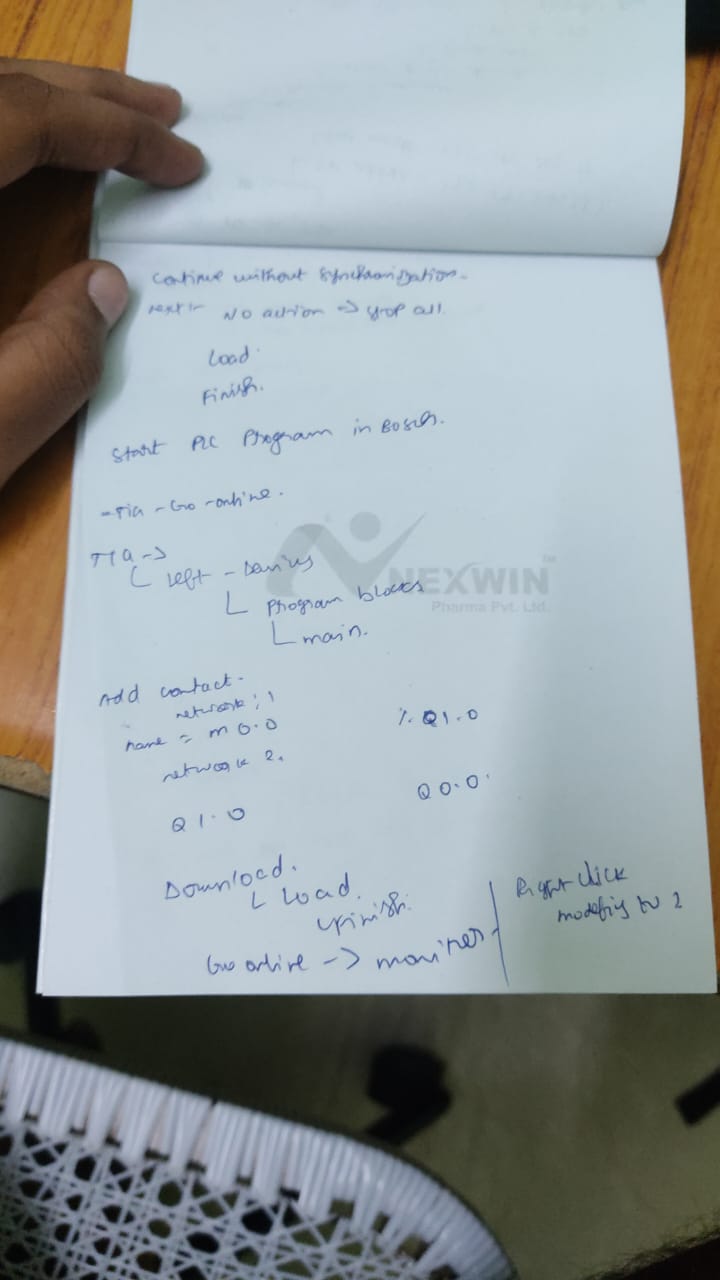 Continue without Synchronization.
next :- No action -> stop all
Load.
Finish.
Start PLC Program in Bosch.
- Tia - Go - online.
TIA ->
Left - Devices
Program blocks
main.
NEXWIN
Pharma Pvt. Ltd.
Add contact.
network : 1
name = m 0.0 %. Q1.0
network 2.
Q 1.0 Q 0.0.
Download.
Load.
Finish.
Go online -> moniter
Right click